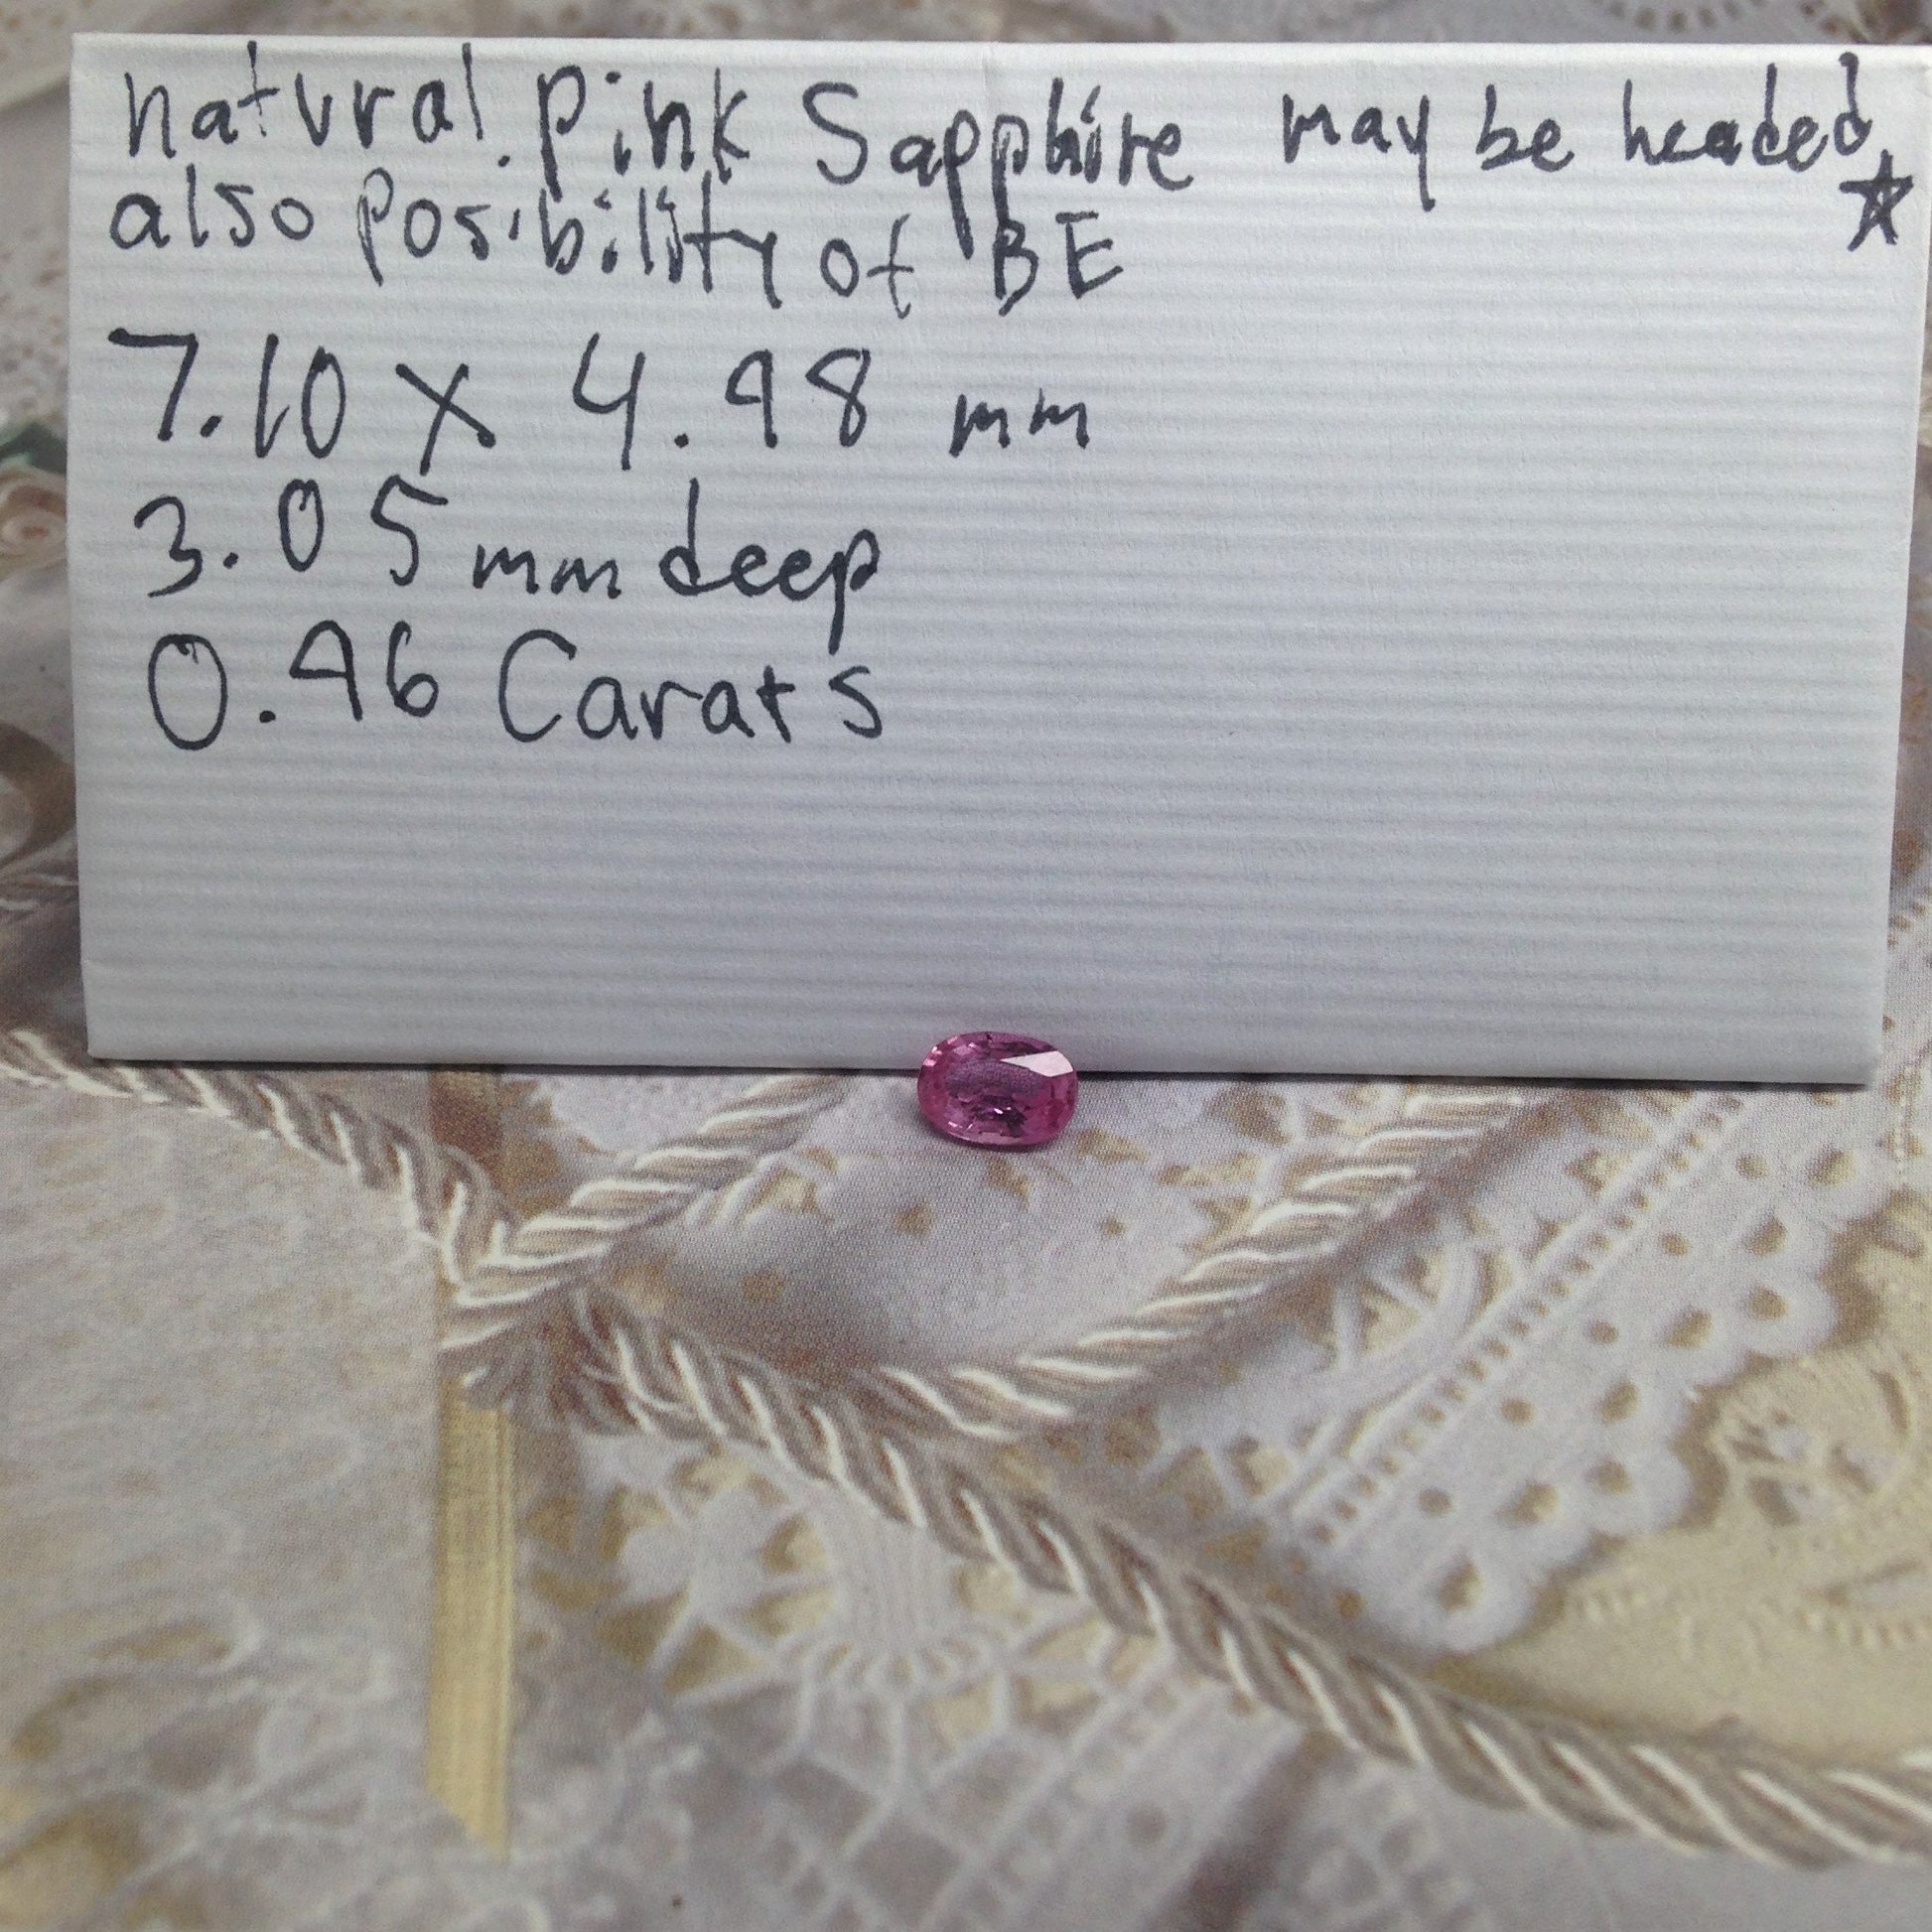 natural pink Sapphire may be headed
also posibility of BE
7.10 x 4.98 mm
3.05 mm deep
0.96 Carats